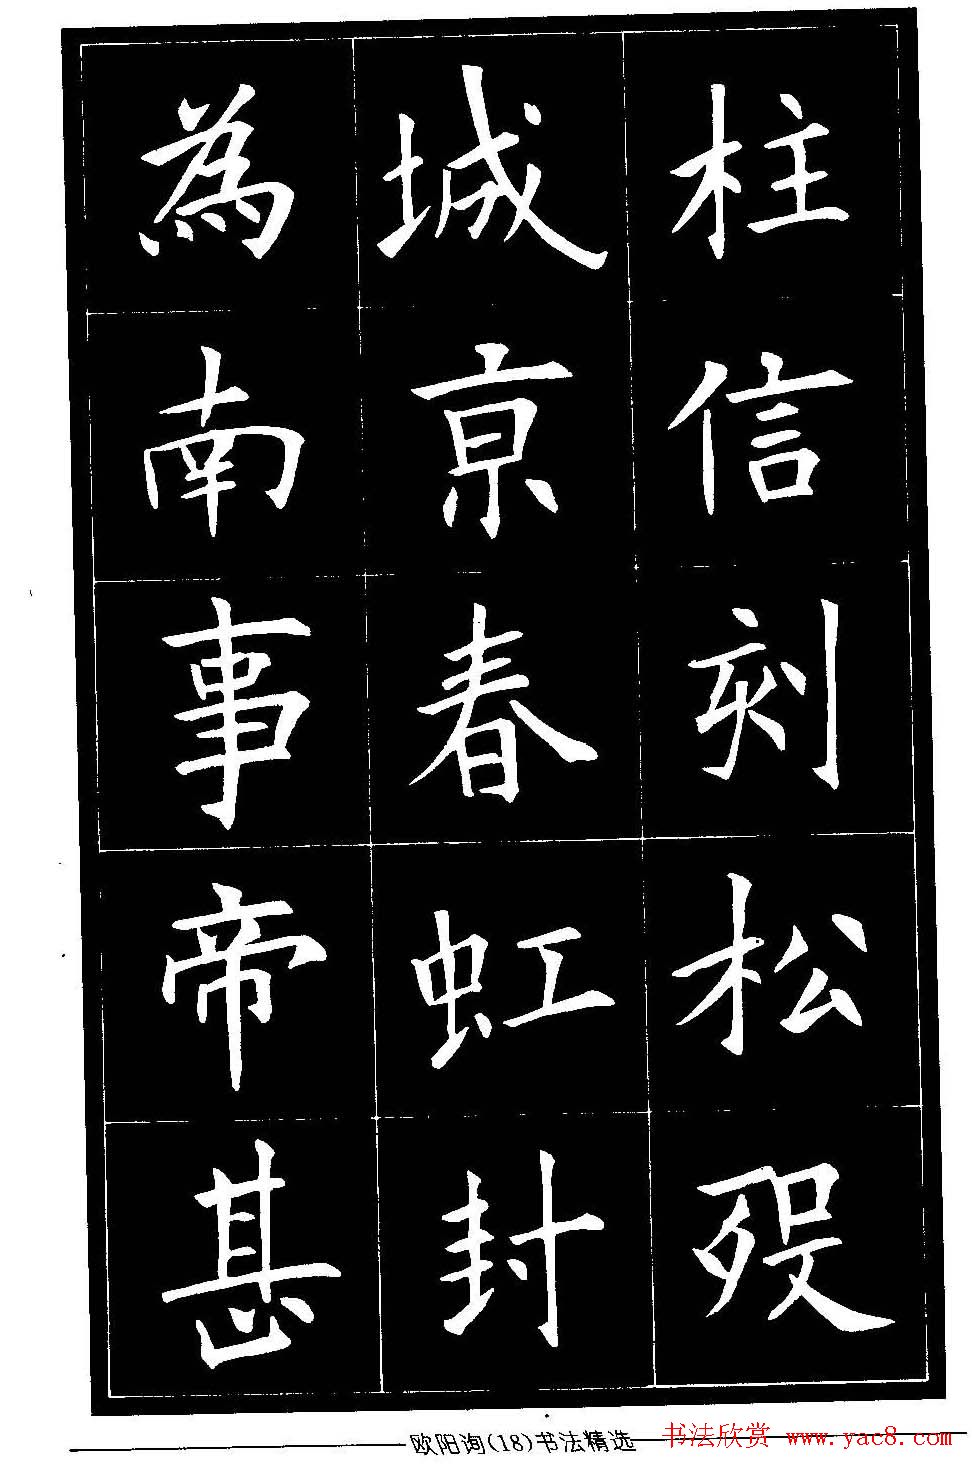 柱信刻松殁
城京春虹封
為南事帝甚
欧阳询(18)书法精选
书法欣赏 www.yac8.com